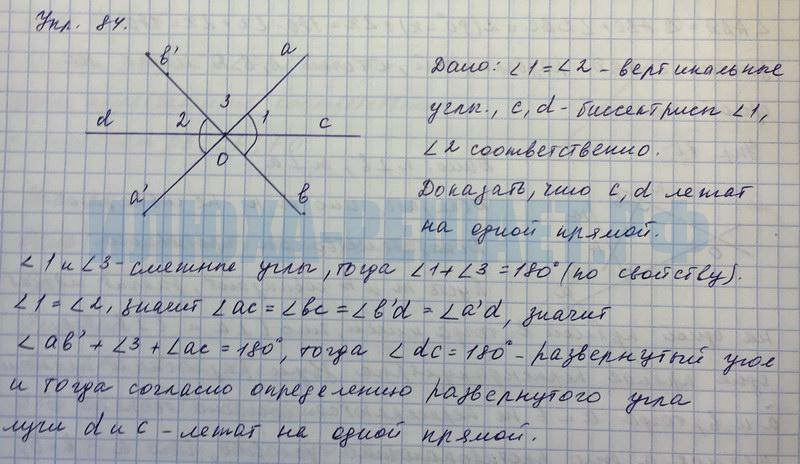 Упр. 84.
b' a
3
d 2 1 c
O
a' b
Дано: ∠1=∠2 - вертикальные
углы., c, d - биссектрисы ∠1,
∠2 соответственно.
Доказать, что c, d лежат
на одной прямой.
∠1 и ∠3 - смежные углы, тогда ∠1+∠3=180° (по свойству).
∠1=∠2, значит ∠ac=∠bc=∠b'd=∠a'd, значит
∠ab'+∠3+∠ac=180°, тогда ∠dc=180° - развернутый угол
и тогда согласно определению развернутого угла
лучи d и c - лежат на одной прямой.